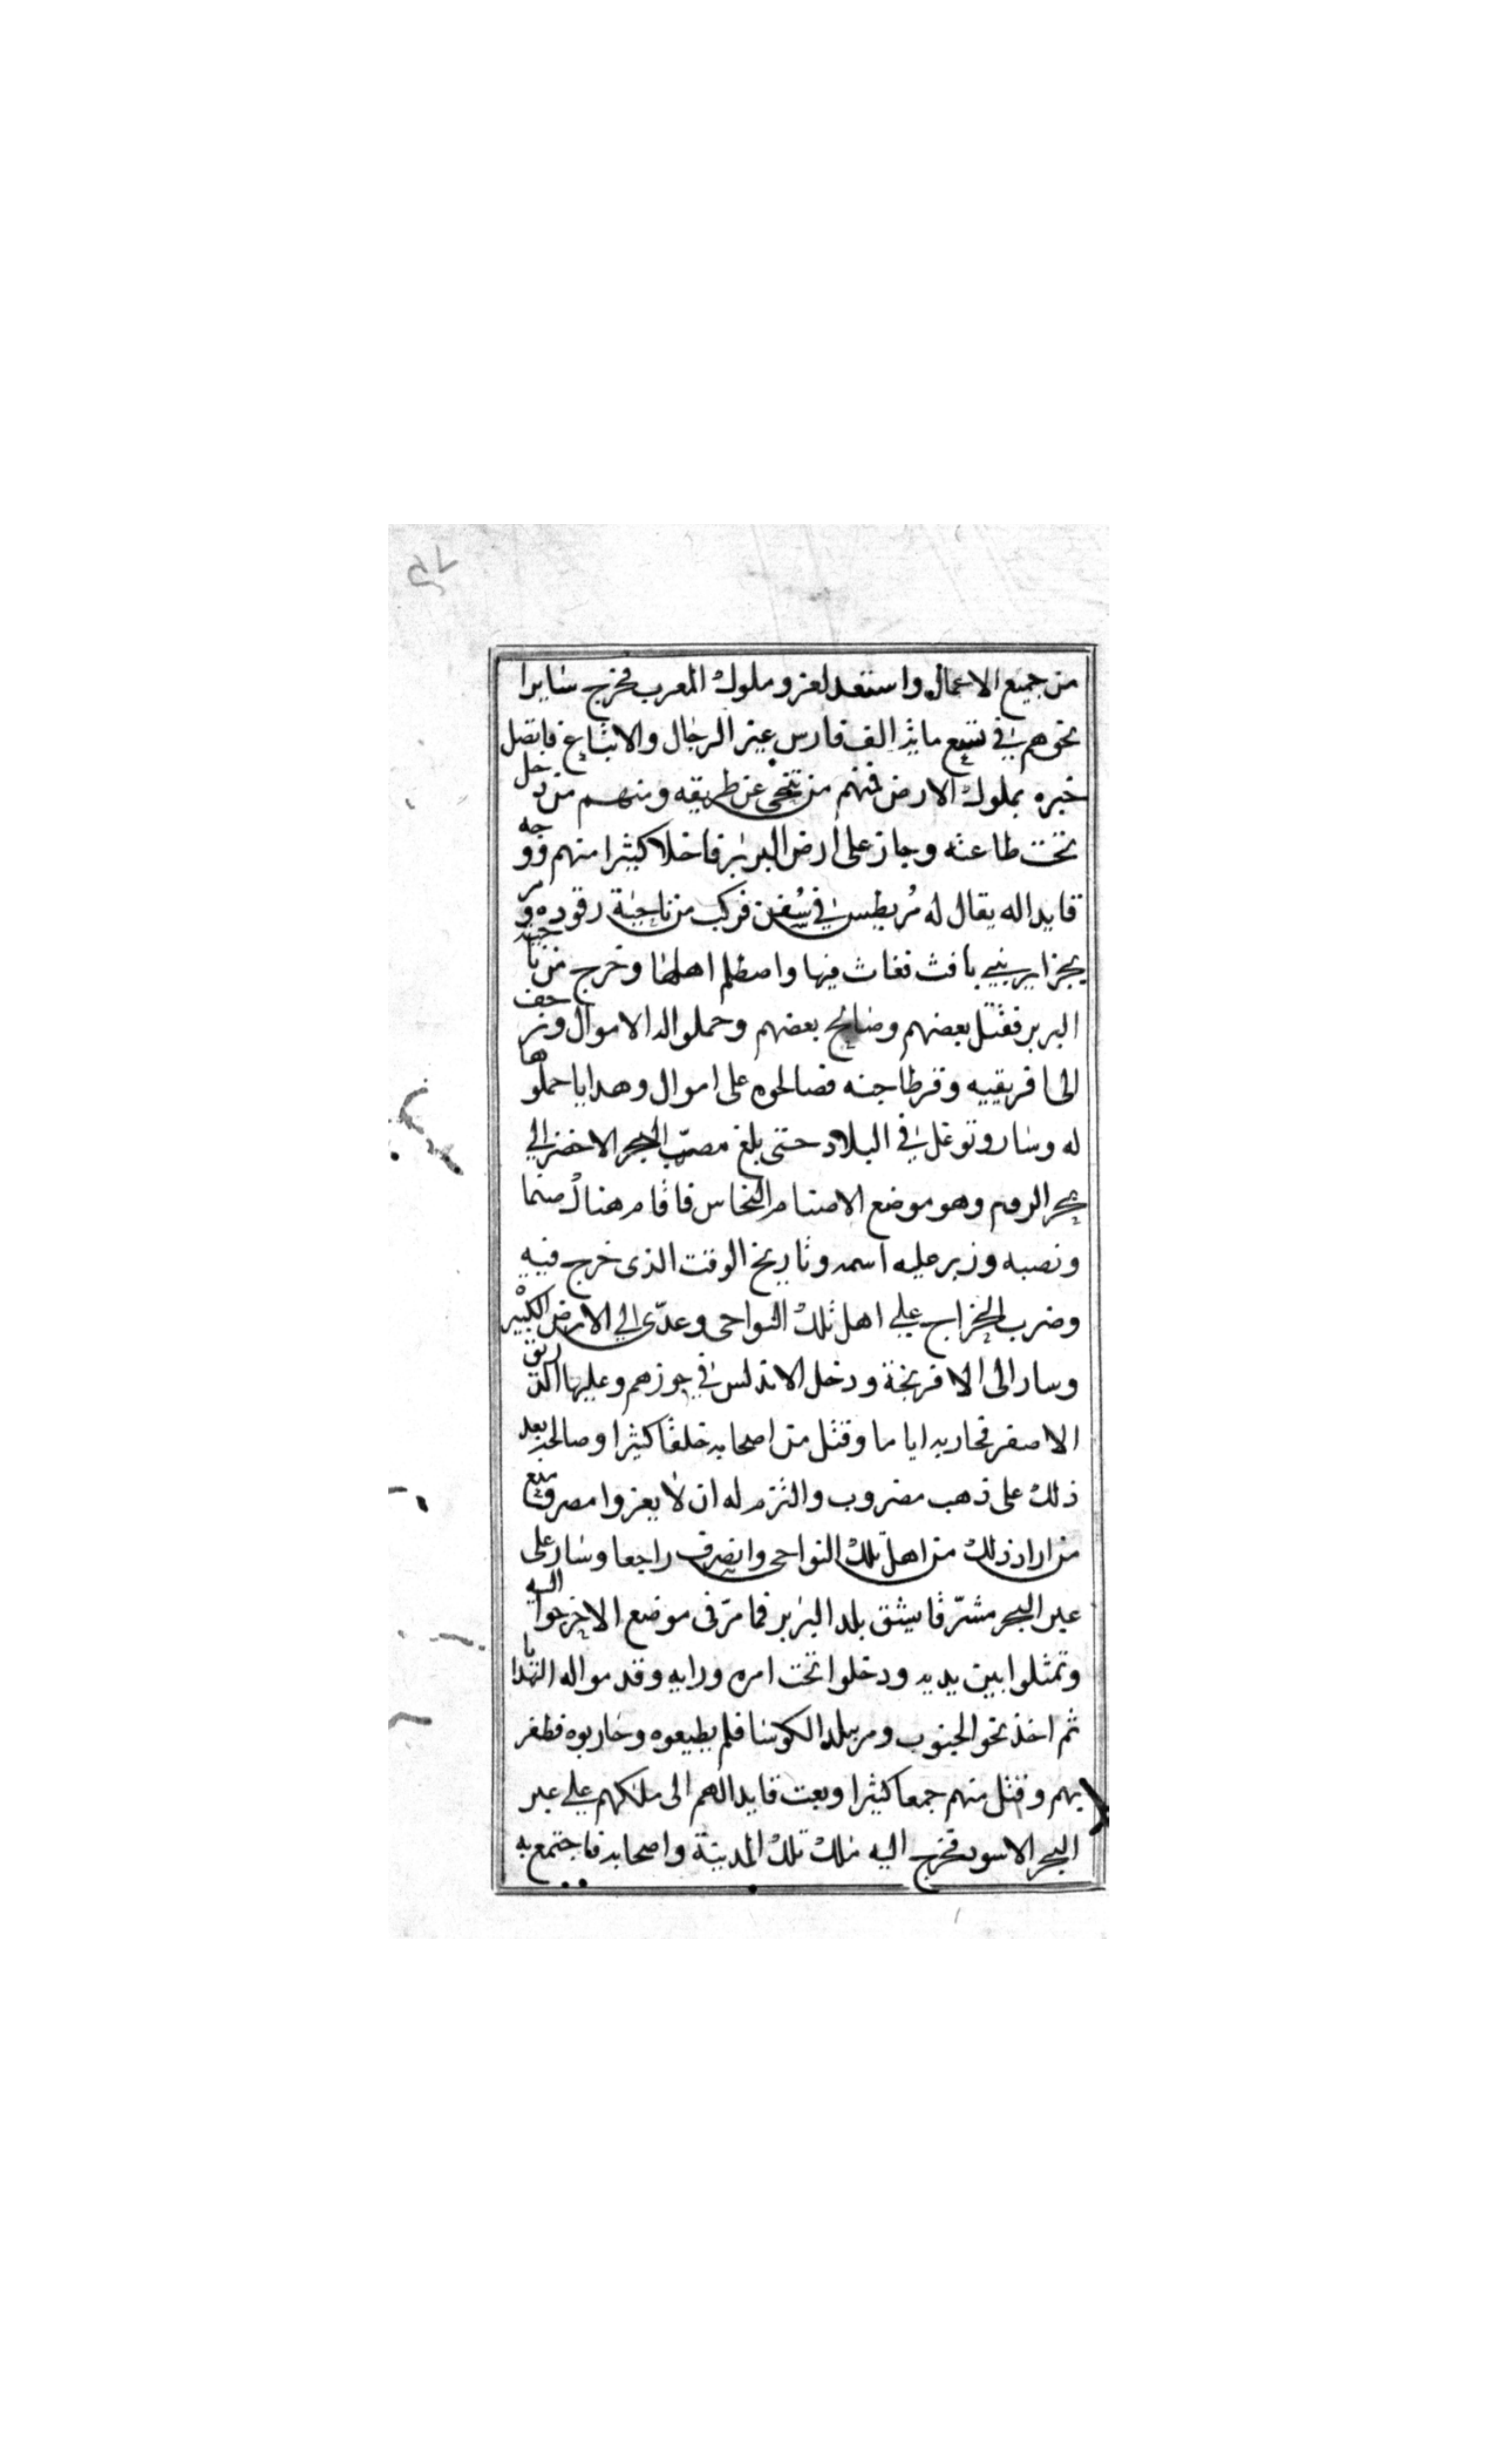 ٥٧
من جميع الاعمال واستعد لغزو ملوك المغرب فخرج سايرا
نحوهم في تسع ماية الف فارس غير الرجال والاتباع فاتصل
خبره بملوك الارض فمنهم من تنحى عن طريقه ومنهم من دخل
تحت طاعته وجاز على ارض البربر فاخلا كثيرا منهم ووجه
قايدا له يقال له مريطيس في سفن فركب من ناحية رقوده ومر
بجزاير بني يافث فعاث فيها واصطلم اهلها وخرج من ناحية
البربر فقتل بعضهم وصالح بعضهم وحملوا اليه الاموال وزحف
الى افريقيه وقرطاجنه فصالحوه على اموال وهدايا حملوها
له وسار وتوغل في البلاد حتى بلغ مصب البحر الاخضر الي
بحر الروم وهو موضع الاصنام النحاس فاقام هناك صنما
ونصبه وزبر عليه اسمه وتاريخ الوقت الذى خرج فيه
وضرب الخراج علي اهل تلك النواحى وعدّى الي الارض الكبيره
وسار الى الافرنجة ودخل الاندلس في جوزهم وعليها الذريق
الاصفر فحاربه اياما وقتل من اصحابه خلقا كثيرا وصالحه بعد
ذلك على ذهب مضروب والتزم له ان لا يغزوا مصر ومنع
من اراد ذلك من اهل تلك النواحى وانصرف راجعا وسار على
عبر البحر مشرّقا يشق بلد البربر فما مرّ فى موضع الا خرجوا اليه
وتمثلوا بين يديه ودخلوا تحت امره ورايه وقدموا له الهدايا
ثم اخذ نحو الجنوب ومر ببلد الكوسا فلم يطيعوه وحاربوه فظفر
بهم وقتل منهم جمعا كثيرا وبعث قايدا لهم الى ملكهم علي عبر
البحر الاسود فخرج اليه ملك تلك المدينة واصحابه فاجتمع به